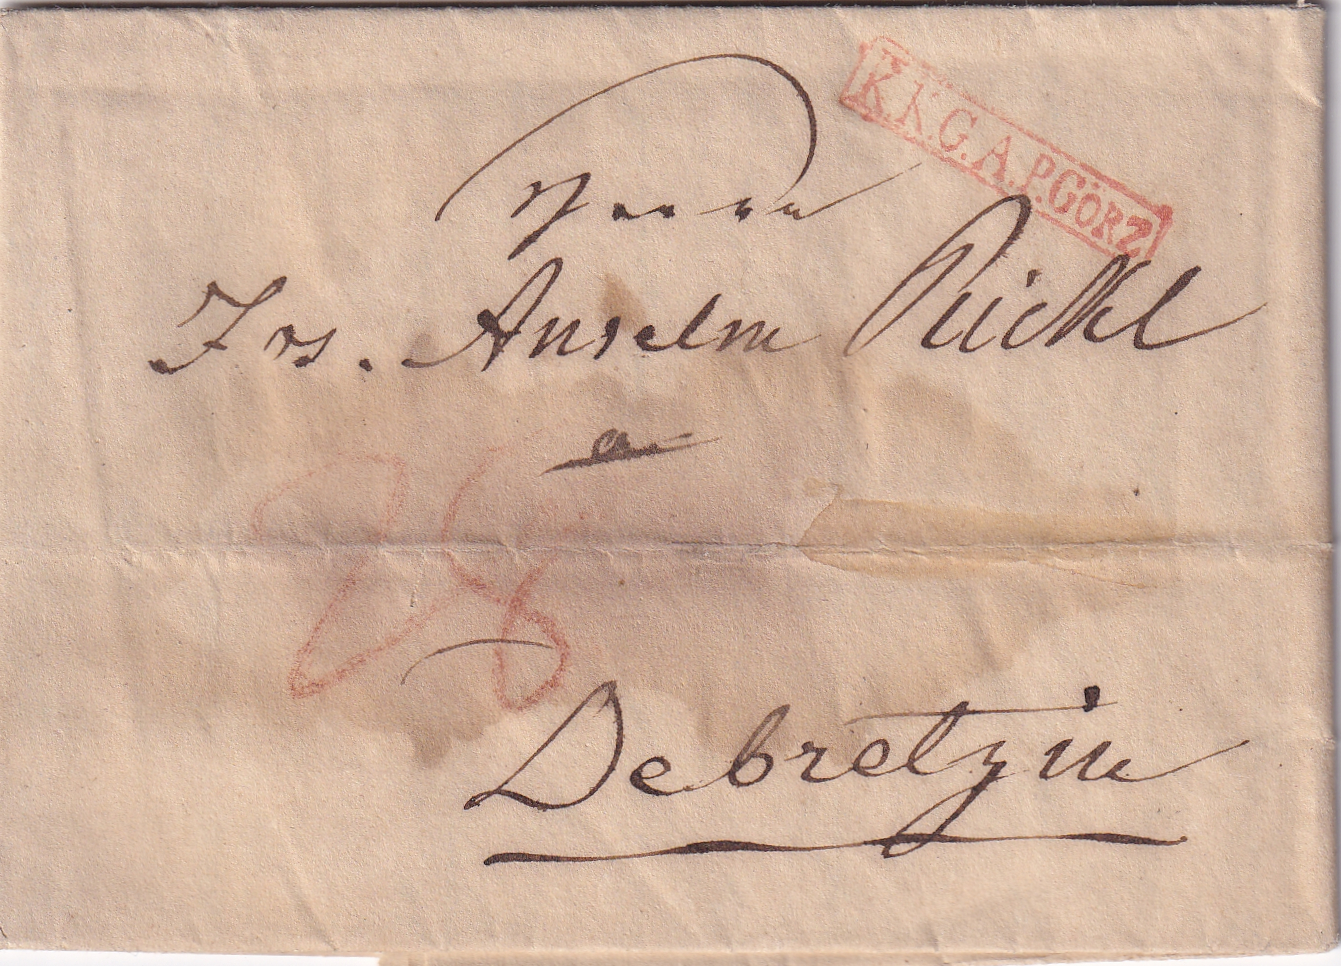 K.K.G.A.P.GÖRZ
Herrn
Jos. Anselm Rickl
a
28
Debretzin